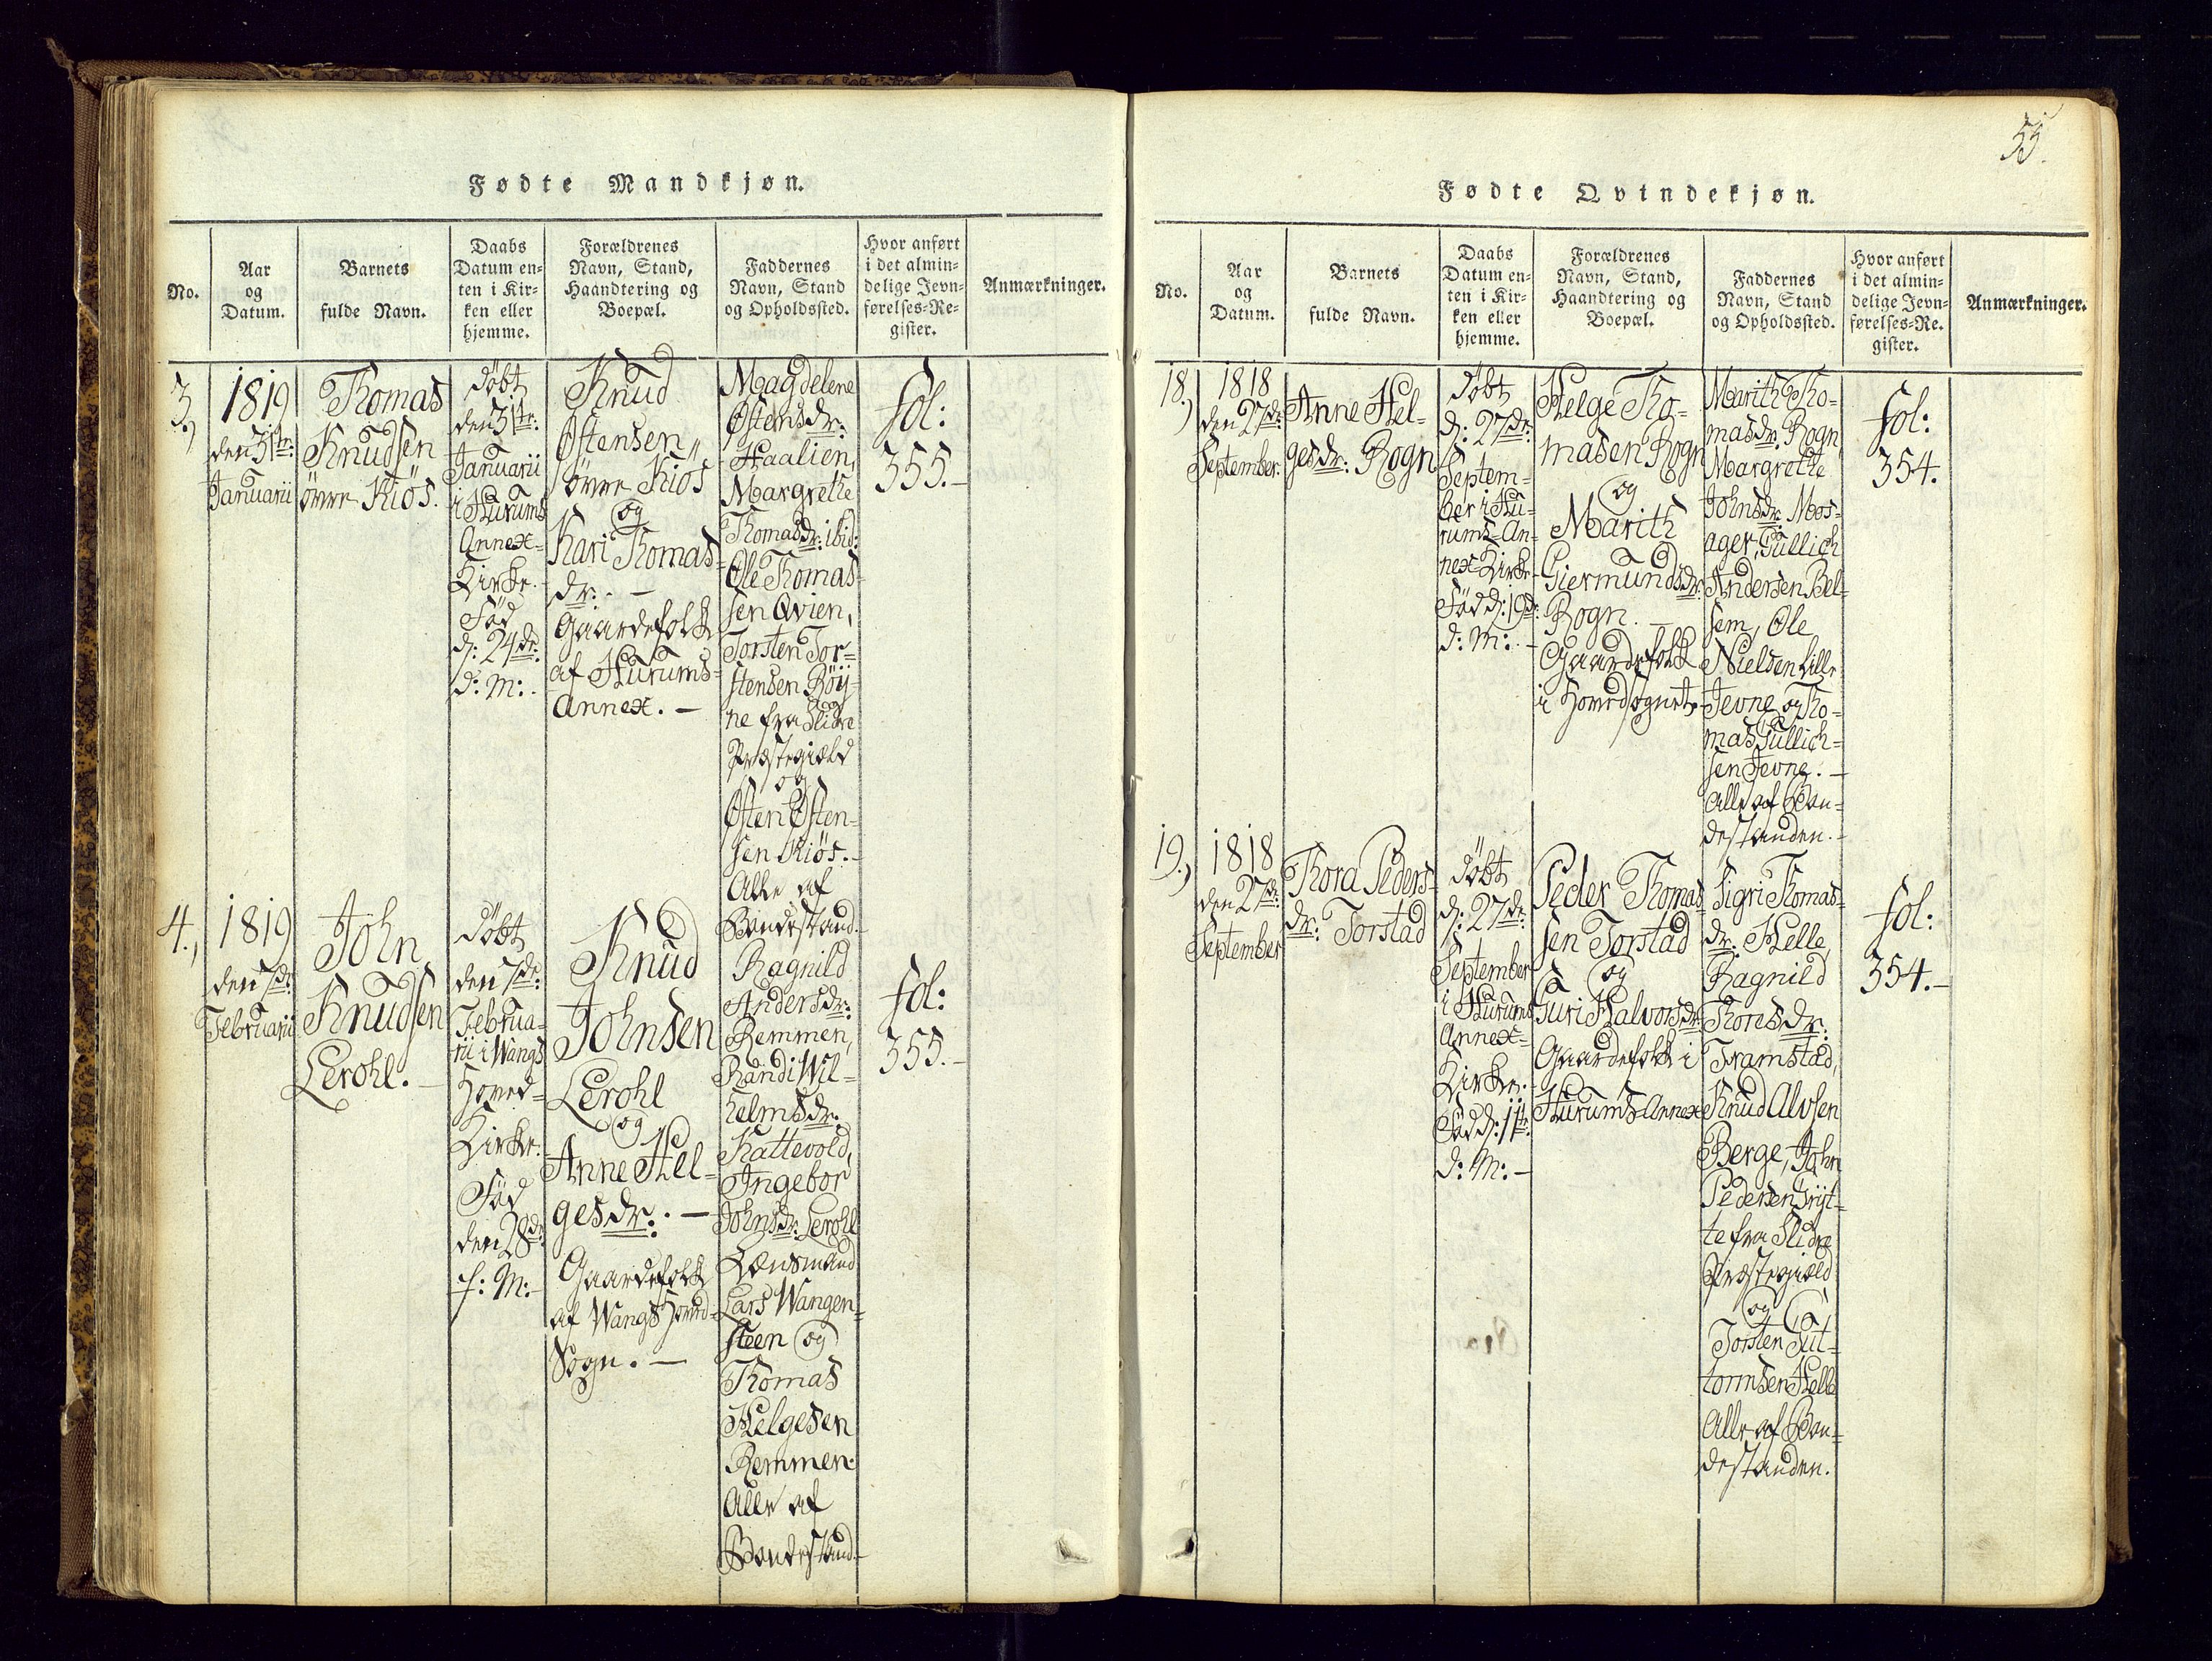 Fødte Mandkjøn.
No.
Aar
og
Datum.
Barnets
fulde Navn.
Daabs
Datum en-
ten i Kir-
ken eller
hjemme.
Forældrenes
Navn, Stand,
Haandtering og
Boepæl.
Faddernes
Navn, Stand
og Opholdssted.
Hvor anført
i det almin-
delige Jevn-
førelses-Re-
gister.
Anmærkninger.
3.,
1819
den 31te:
Januarii
Thomas
Knudsen
övre Kiös.
döbt
den 31te:
Januarii
i Hurums
Annex-
Kirke.
Föd
d: 24de:
d: M:.
Knud
Østensen
övre Kiös
og
Kari Thomas-
dr:. —
Gaardefolk
af Hurums-
Annex. —
Magdelene
Østensdr:
Haalien,
Margrethe
Thomasdr: ibid:
Ole Thomas-
sen Qvien,
Torsten Tor-
stensen Röÿ-
ne fra Slidre
Præstegiæld
og
Østen Østen-
sen Kiös. -
Alle af
Bondestand. -
fol:
355. -
4.,
1819
den 7de:
Februarii
John
Knudsen
Lerohl. -
döbt
den 7de:
Februa-
rii i Wangs
Hoved-
Kirke.
Föd
den 28de
f: M: -
Knud
Johnsen
Lerohl
og
Anne Hel-
gesdr:. —
Gaardefolk
af Wangs Hoved-
Sogn. —
Ragnild
Andersdr:
Remmen,
Randi Wil-
helmsdr:
Kattevold,
Ingebor
Johnsdr: Lerohl
Lensmand
Lars Wangen-
steen og
Thomas
Helgesen
Remmen.
Alle af
Bondestand. -
fol:
355. -
55.
Fødte Qvindekjøn.
No.
Aar
og
Datum.
Barnets
fulde Navn.
Daabs
Datum en-
ten i Kir-
ken eller
hjemme.
Forældrenes
Navn, Stand,
Haandtering og
Boepæl.
Faddernes
Navn, Stand
og Opholdssted.
Hvor anført
i det almin-
delige Jevn-
førelses-Re-
gister.
Anmærkninger.
18.,
1818
den 27de:
September
Anne Hel-
gesdr: Rogn
döbt
d: 27de:
Septem-
ber i Hu-
rums-An-
nex Kirke
Föd d: 19de:
d: M:. -
Helge Tho-
masen Rogn
og
Marith
Giermundsdr:
Rogn. —
Gaardefolk
i Hovedsognet.
Marith Tho-
masdr: Rogn,
Margrethe
Johnsdr: Mos-
ager, Gullich
Andersen Bel-
sem, Ole
Nielsen Lille
Jevne og Tho-
mas Gullich-
sen Jevne. -
Alle af Bon-
destanden. -
fol:
354.
19.,
1818
den 27de:
September
Thora Peders-
dr: Torstad
döbt
d: 27de:
September
i Hurums
Annex-
Kirke. -
Föd d: 11te:
d: M: -
Peder Thomas-
sen Torstad
og
Guri Halvorsdr:
Gaardefolk i
Hurums-Annex
Sigri Thomas-
dr: Helle,
Ragnild
Thoresdr:
Framstad,
Knud Alvsen
Berge, John
Pedersen Trÿt-
te fra Slidre
Præstegiæld
og
Torsten Gut-
tormsen Helle
Alle af Bon-
destanden.
fol:
354. -